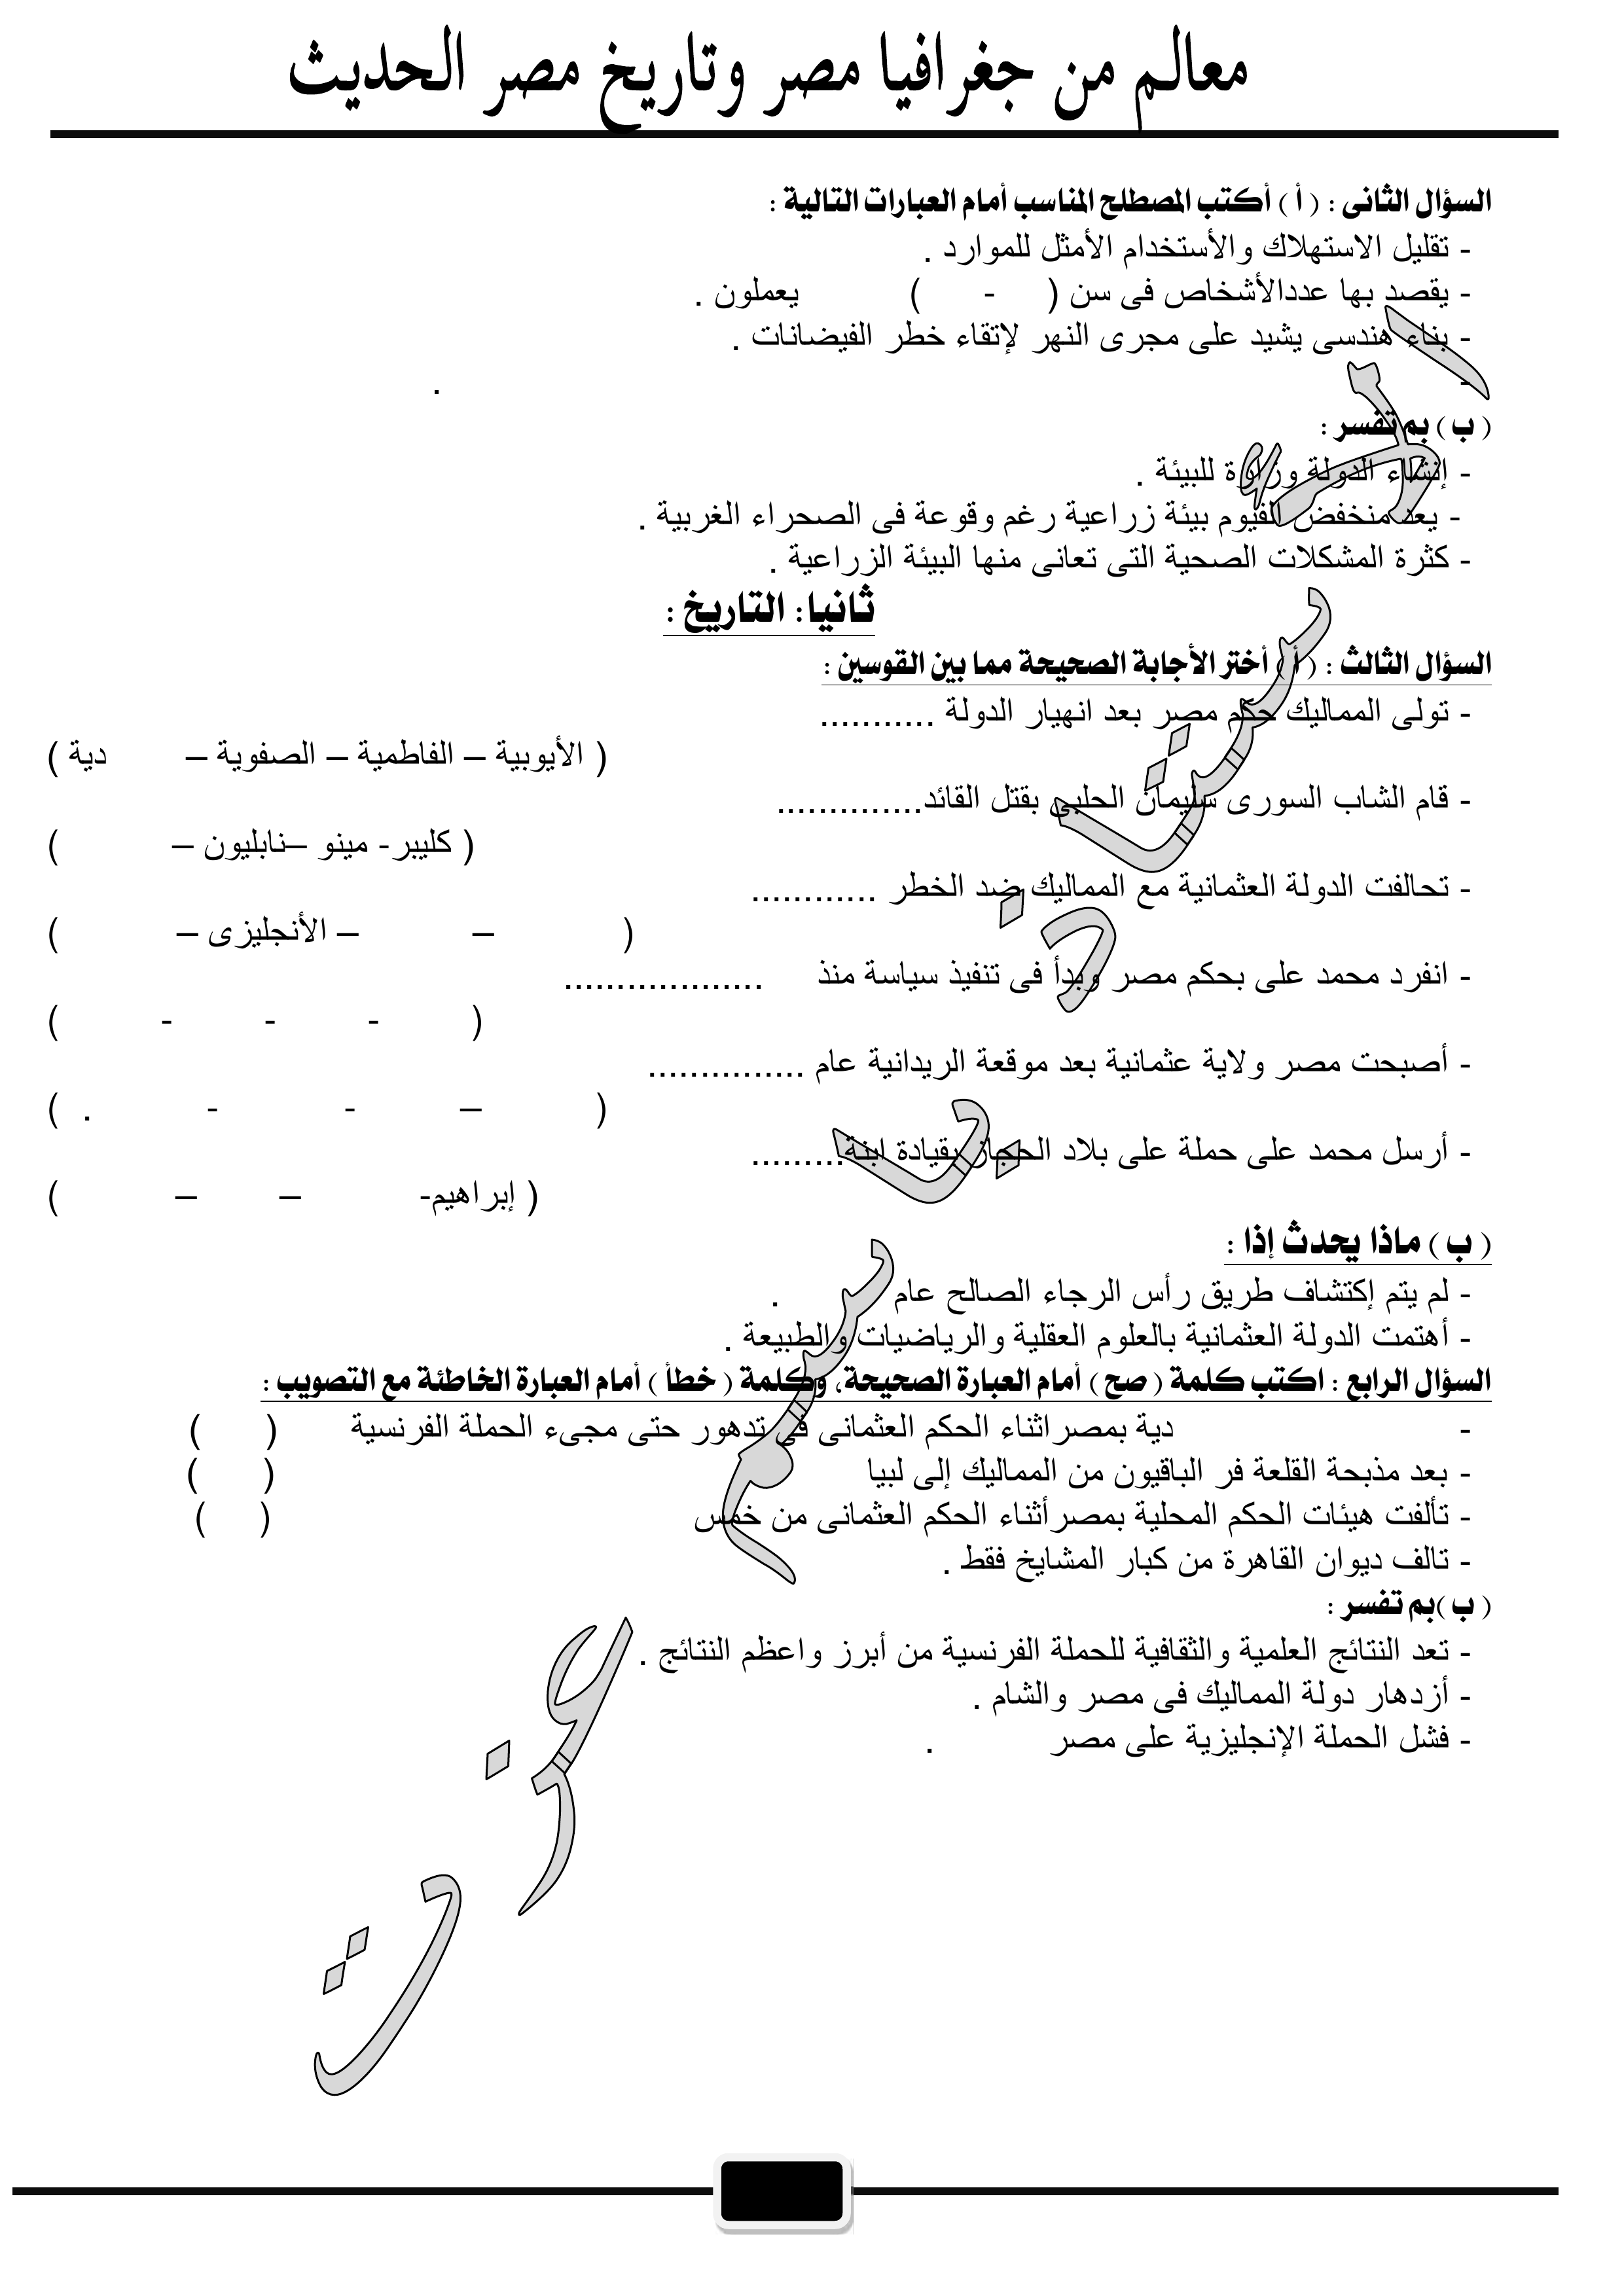 معالم من جغرافيا مصر وتاريخ مصر الحديث
السؤال الثانى : ( أ ) أكتب المصطلح المناسب أمام العبارات التالية :
- تقليل الاستهلاك والأستخدام الأمثل للموارد .
- يقصد بها عددالأشخاص فى سن ( - ) يعملون .
- بناء هندسى يشيد على مجرى النهر لإتقاء خطر الفيضانات .
- .
( ب ) بم تفسر :
- إنشاء الدولة وزارة للبيئة .
- يعد منخفض الفيوم بيئة زراعية رغم وقوعة فى الصحراء الغربية .
- كثرة المشكلات الصحية التى تعانى منها البيئة الزراعية .
ثانيا: التاريخ :
السؤال الثالث : ( أ ) أختر الأجابة الصحيحة مما بين القوسين :
- تولى المماليك حكم مصر بعد انهيار الدولة ...........
( الأيوبية – الفاطمية – الصفوية – دية )
- قام الشاب السورى سليمان الحلبى بقتل القائد..............
( كليبر- مينو –نابليون – )
- تحالفت الدولة العثمانية مع المماليك ضد الخطر ............
( – – الأنجليزى – )
- انفرد محمد على بحكم مصر وبدأ فى تنفيذ سياسة منذ ...................
( - - - )
- أصبحت مصر ولاية عثمانية بعد موقعة الريدانية عام ...............
( – - - . )
- أرسل محمد على حملة على بلاد الحجاز بقيادة ابنة.........
( إبراهيم- – – )
( ب ) ماذا يحدث إذا :
- لم يتم إكتشاف طريق رأس الرجاء الصالح عام .
- أهتمت الدولة العثمانية بالعلوم العقلية والرياضيات والطبيعة .
السؤال الرابع : اكتب كلمة ( صح ) أمام العبارة الصحيحة، وكلمة ( خطأ ) أمام العبارة الخاطئة مع التصويب :
- دية بمصراثناء الحكم العثمانى فى تدهور حتى مجىء الحملة الفرنسية ( )
- بعد مذبحة القلعة فر الباقيون من المماليك إلى لبيا ( )
- تألفت هيئات الحكم المحلية بمصرأثناء الحكم العثمانى من خمس ( )
- تالف ديوان القاهرة من كبار المشايخ فقط .
( ب )بم تفسر :
- تعد النتائج العلمية والثقافية للحملة الفرنسية من أبرز واعظم النتائج .
- أزدهار دولة المماليك فى مصر والشام .
- فشل الحملة الإنجليزية على مصر .